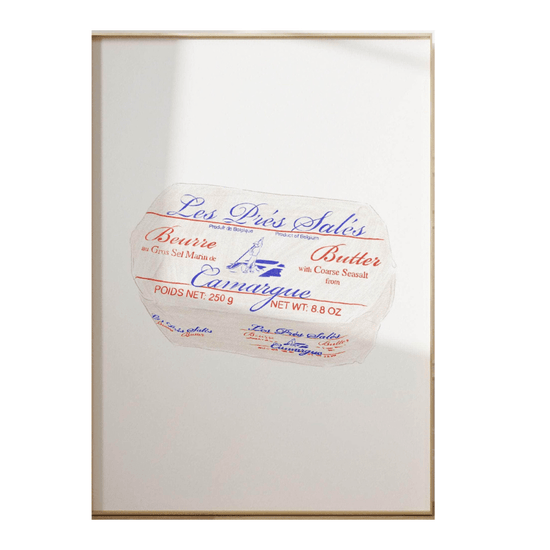 Les Prés Salés
Produit de Belgique Product of Belgium
Beurre Butter
au Gros Sel Marin de with Coarse Seasalt
from
Camargue
POIDS NET: 250 g NET WT: 8.8 OZ
Les Prés Salés
Beurre
Les Prés Salés
Beurre Butter
Camargue